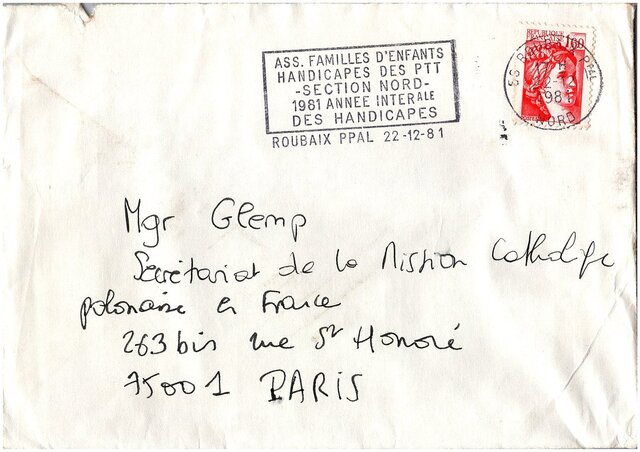 ASS. FAMILLES D'ENFANTS
HANDICAPES DES PTT
-SECTION NORD-
1981 ANNEE INTERALE
DES HANDICAPES
ROUBAIX PPAL 22-12-81
1,60
59 ROUBAIX PPAL
22-12
1981
NORD
Mgr Glemp
Secrétariat de la Mission Catholique
polonaise en France
263 bis rue St Honoré
75001 PARIS